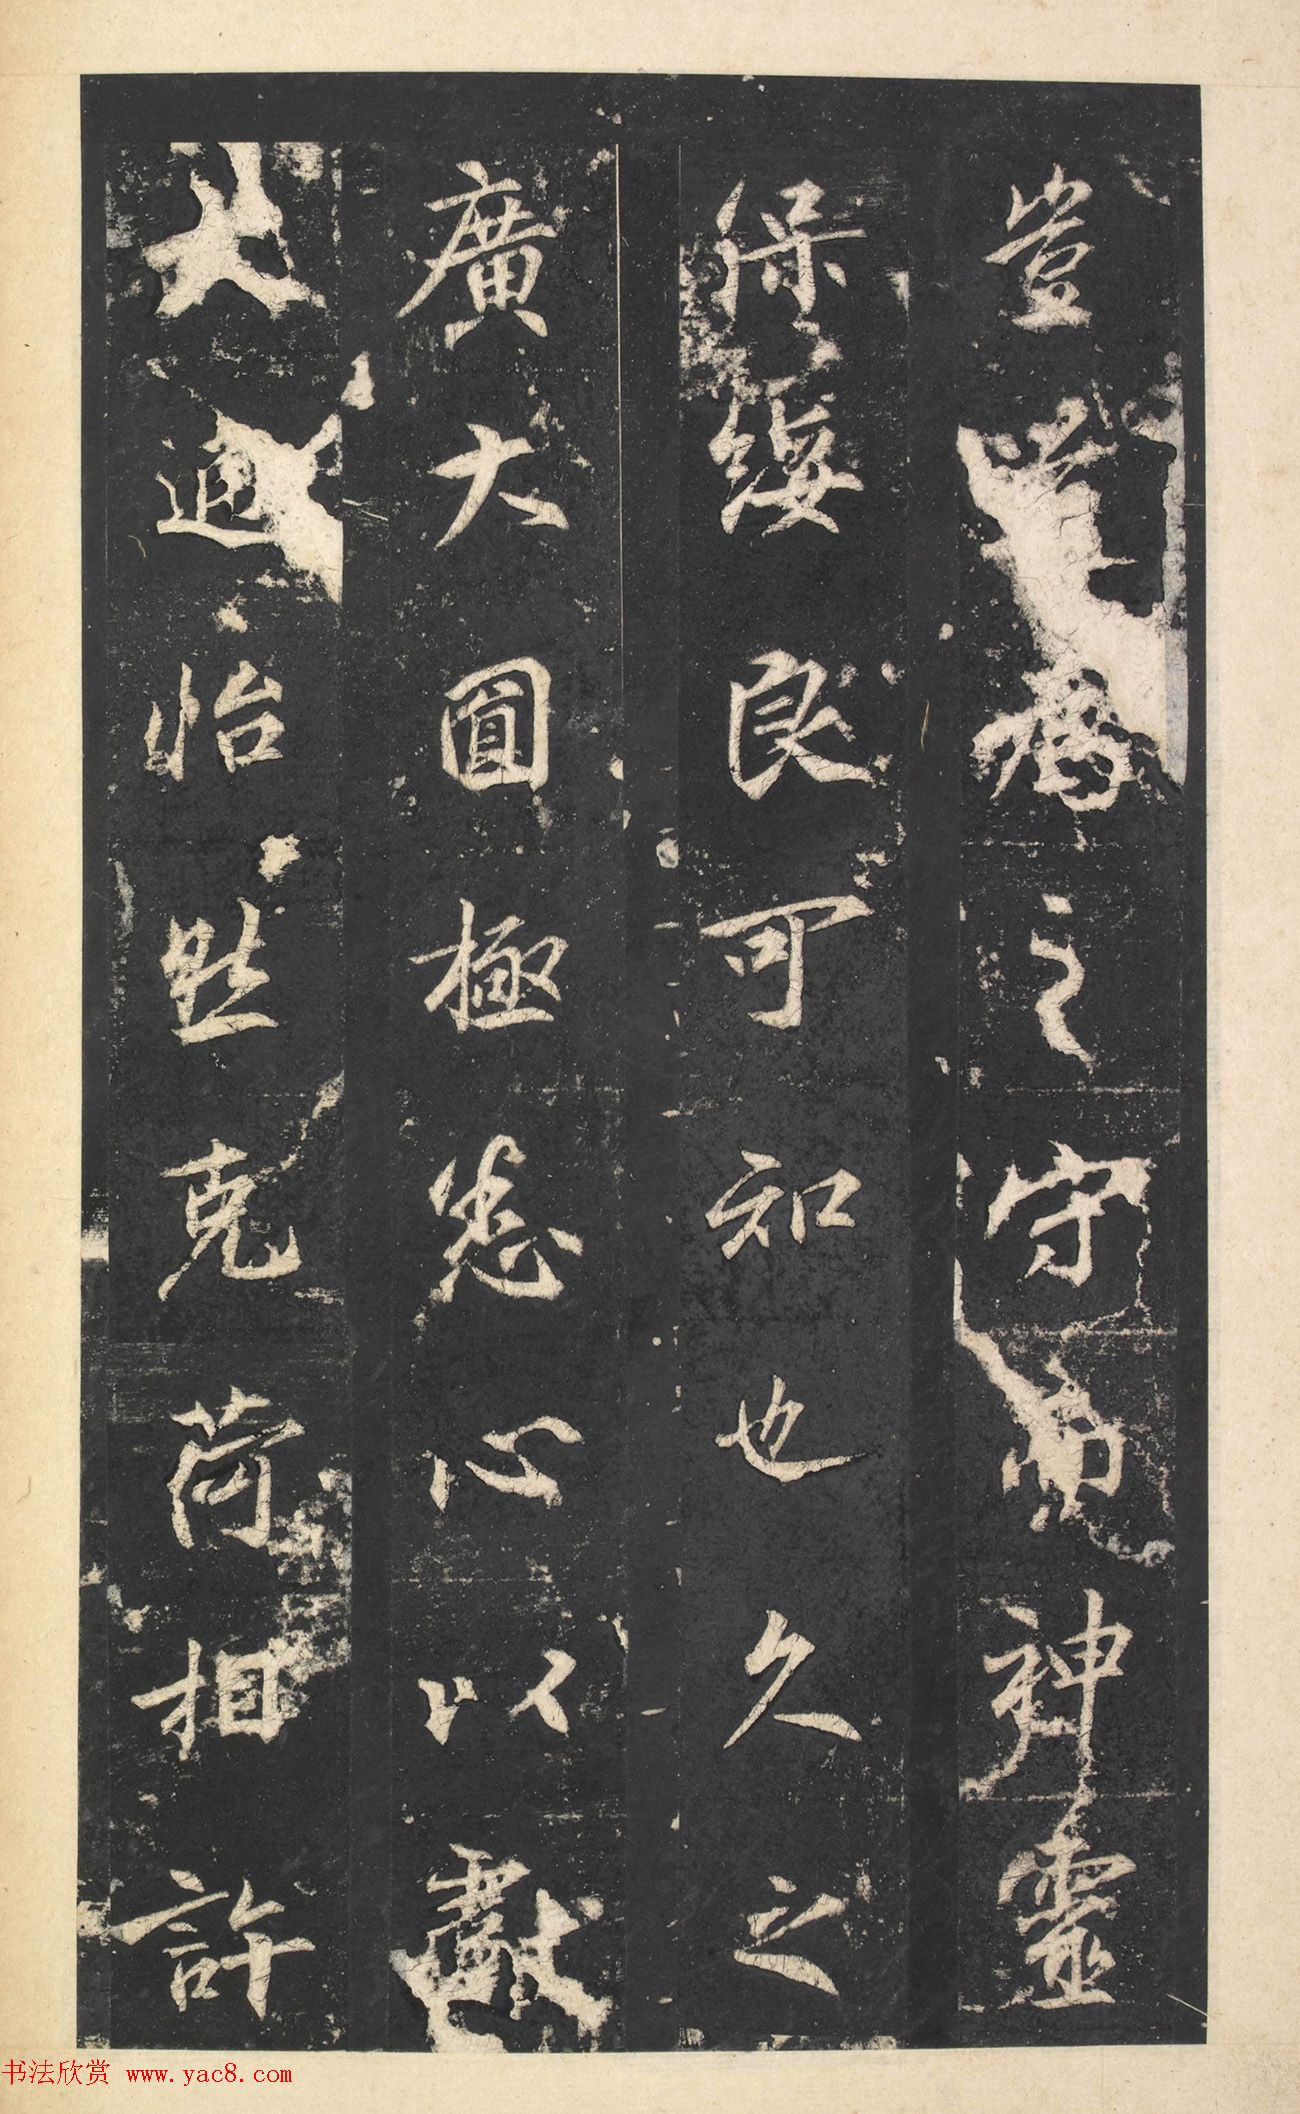 豈為之守神靈
保綏良可知也久之
廣大圓極悉心以獻
大通怡然克荷相許
书法欣赏 www.yac8.com